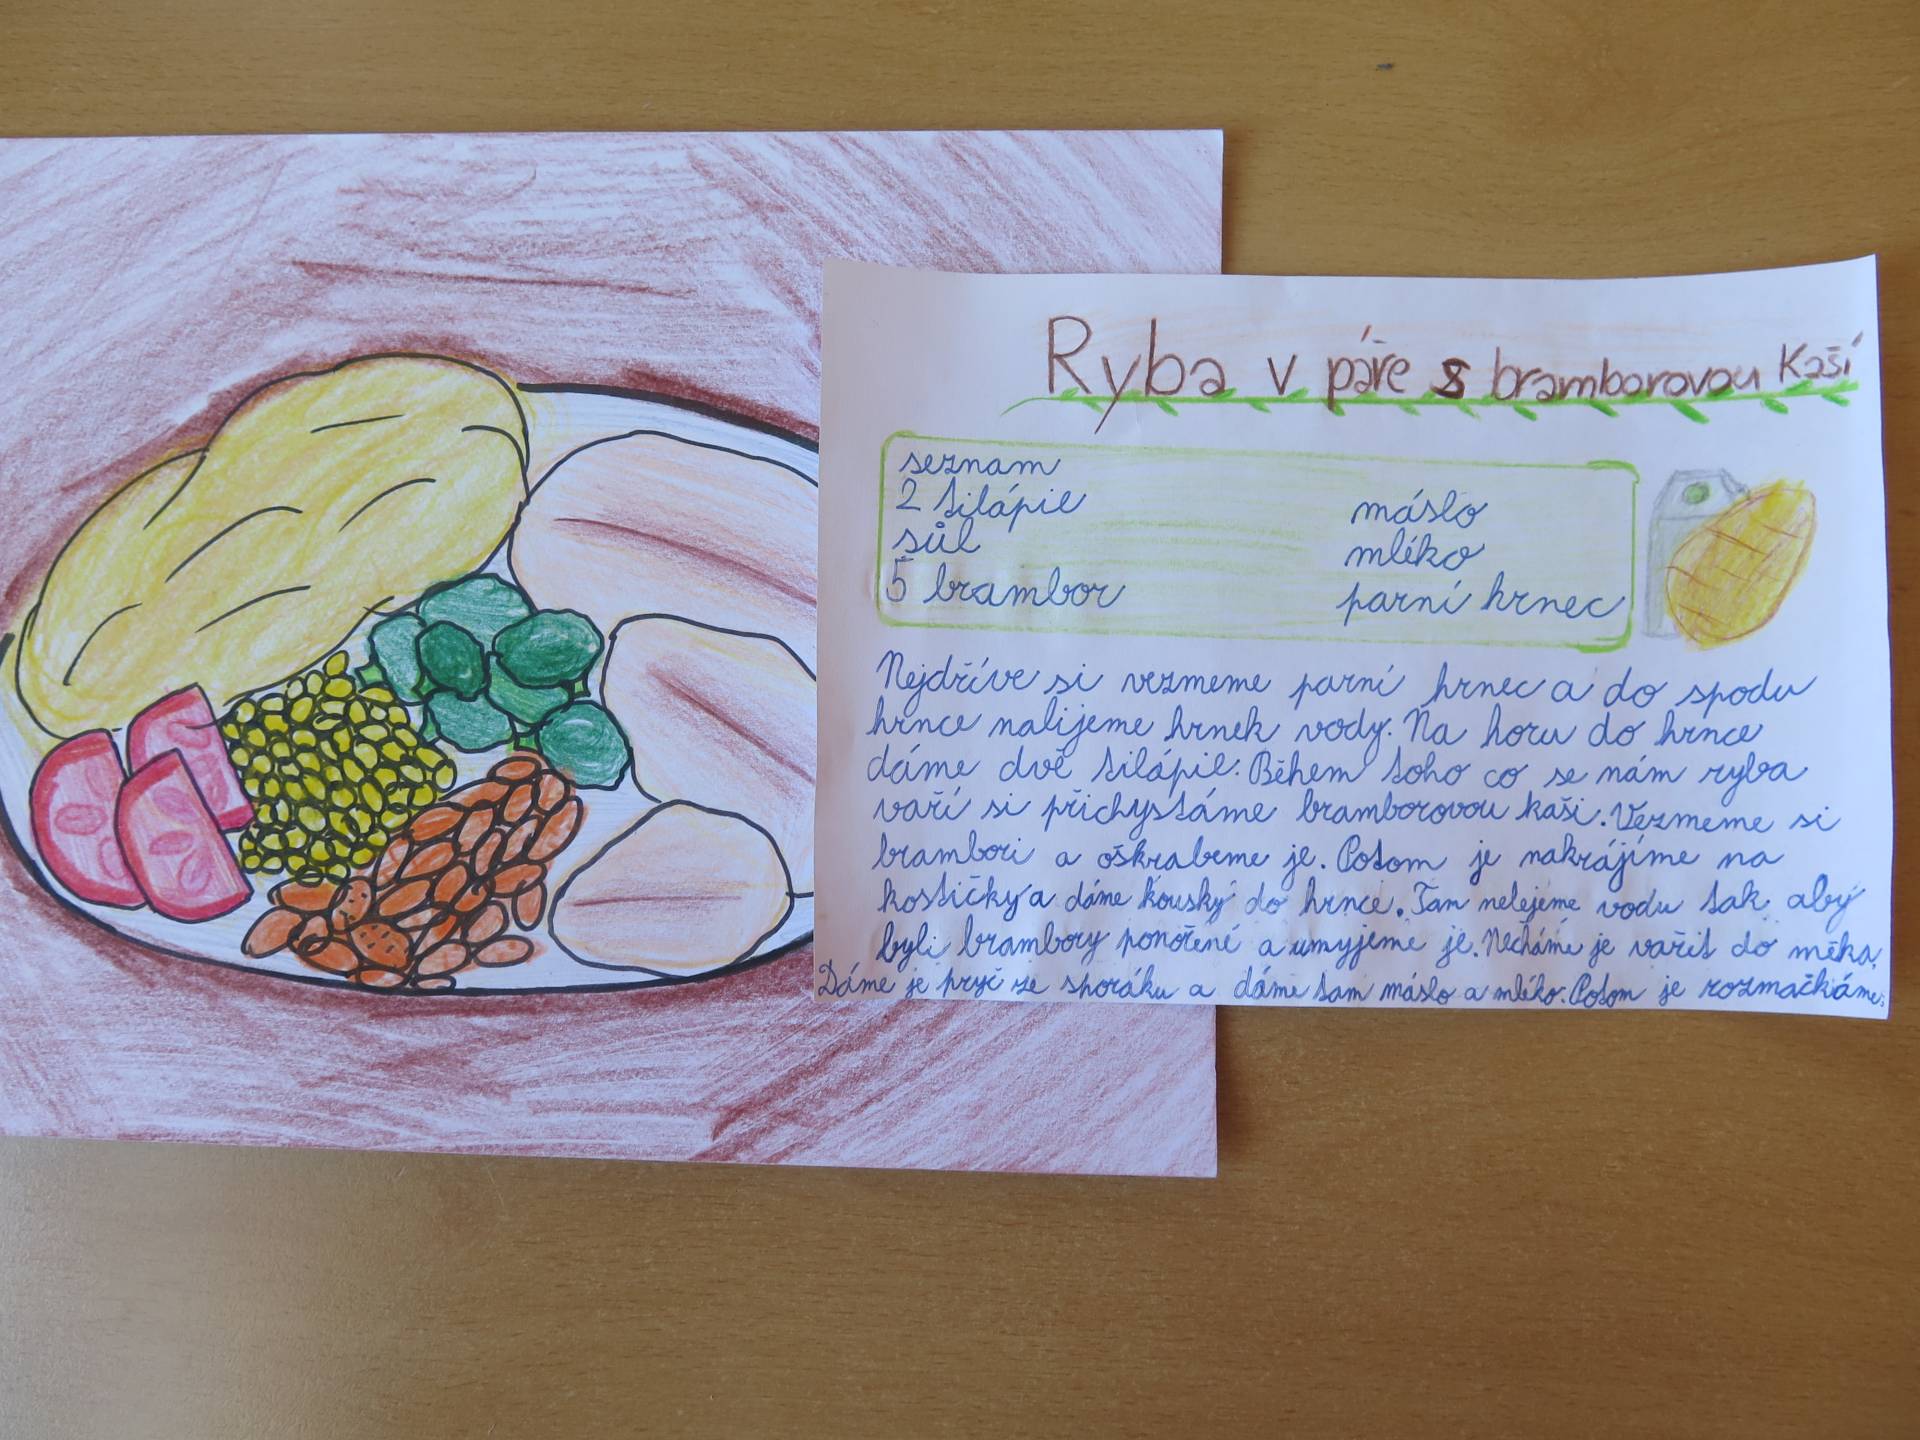 Ryba v páře s bramborovou Kaší
seznam
2 tilápie
sůl
5 brambor
máslo
mléko
parní hrnec
Nejdříve si vezmeme parní hrnec a do spodu
hrnce nalijeme hrnek vody. Na horu do hrnce
dáme dvě tilápie. Během toho co se nám ryba
vaří si přichystáme bramborovou kaši. Vezmeme si
brambori a oškrabeme je. Potom je nakrájíme na
kostičky a dáme kousky do hrnce. Tam nelejeme vodu tak aby
byli brambory ponořené a umyjeme je. Necháme je vařit do měka.
Dáme je pryč ze sporáku a dáme tam máslo a mléko. Potom je rozmačkáme.